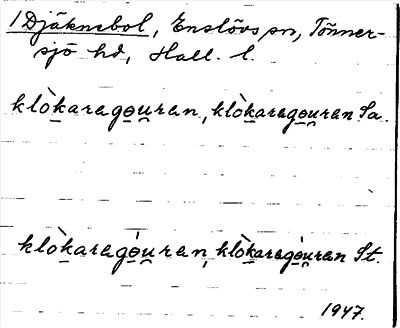 1 Djäknebol, Enslövs sn, Tönner-
sjö hd, Hall. l.
klòkaragɵu̯ran, klòkaragɵu̯ran Sa.
klòkaragɵ̀u̯ran, klòkaragɵ̀u̯ran St.
1947.